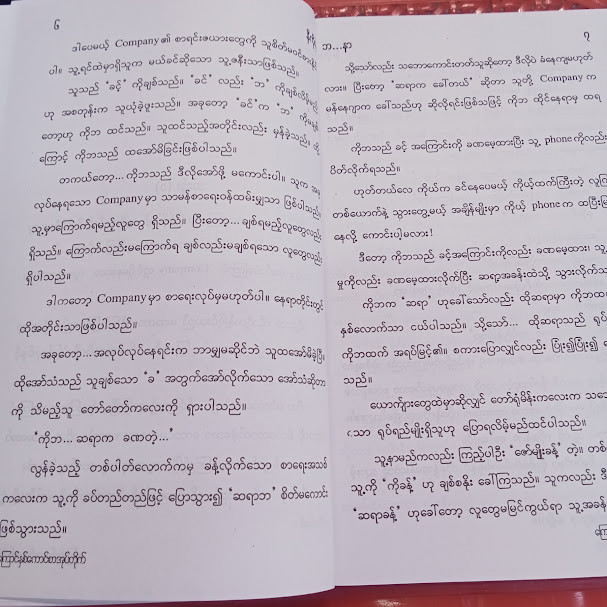 ၆
ဒါပေမယ့် Company ၏ စာရင်းဇယားတွေကို သူစိတ်မဝင်စားနိုင်
ပါ။ သူ့ရင်ထဲမှာရှိသူက မယ်ခင်ဆိုသော သူ့ဇနီးသာဖြစ်သည်။
သူသည် "ခင့်" ကိုချစ်သည်။ "ခင်" လည်း "ဘ" ကိုချစ်လိမ့်မည်
ဟု အစတုန်းက သူယုံခဲ့ဖူးသည်။ အခုတော့ "ခင်" က "ဘ" ကို
တော့ဟု ကိုဘ ထင်သည်။ သူထင်သည့်အတိုင်းလည်း မှန်ခဲ့သည်။ ထို့
ကြောင့် ကိုဘသည် ထအော်မိခြင်းဖြစ်ပါသည်။
တကယ်တော့... ကိုဘသည် ဒီလိုအော်ဖို့ မကောင်းပါ။ သူက အခု
လုပ်နေရသော Company မှာ သာမန်စာရေးဝန်ထမ်းမျှသာ ဖြစ်ပါသည်။
သူ့မှာကြောက်ရမည့်လူတွေ ရှိသည်။ ပြီးတော့... ချစ်ရမည့်လူတွေလည်း
ရှိသည်။ ကြောက်လည်းမကြောက်ရ ချစ်လည်းမချစ်ရသော လူတွေလည်း
ရှိပါသည်။
ဒါကတော့ Company မှာ စာရေးလုပ်မှမဟုတ်ပါ။ နေရာတိုင်းတွင်
ထိုအတိုင်းသာဖြစ်ပါသည်။
အခုတော့... အလုပ်လုပ်နေရင်းက ဘာမျှမဆိုင်ဘဲ သူထအော်မိခဲ့ပြီ။
ထိုအော်သံသည် သူချစ်သော "ခ" အတွက်အော်လိုက်သော အော်သံဆိုတာ
ကို သိမည့်သူ တော်တော်ကလေးကို ရှားပါသည်။
"ကိုဘ... ဆရာက ခဏတဲ့..."
လွန်ခဲ့သည့် တစ်ပါတ်လောက်ကမှ ခန့်လိုက်သော စာရေးအသစ်
ကလေးက သူ့ကို ခပ်တည်တည်ဖြင့် ပြောသွား၍ "ဆရာဘ" စိတ်မကောင်း
ဖြစ်သွားသည်။
ကြောင်နှစ်ကောင်စာအုပ်တိုက်
ဘ...နာ
၇
သို့သော်လည်း သဘောကောင်းတတ်သူဆိုတော့ ဒီလိုပဲ ခံနေကျမဟုတ်
လား။ ပြီးတော့ "ဆရာက ခေါ်တယ်" ဆိုတာ သူတို့ Company က
မန်နေဂျာက ခေါ်သည်ဟု ဆိုလိုရင်းဖြစ်သဖြင့် ကိုဘ ထိုင်နေရာမှ ထရ
သည်။
ကိုဘသည် ခင့် အကြောင်းကို ခဏမေ့ထားပြီး သူ့ phone ကိုလည်း
ပိတ်လိုက်ရသည်။
ဟုတ်တယ်လေ ကိုယ်က ခင်နေပေမယ့် ကိုယ့်ထက်ကြီးတဲ့
တစ်ယောက်နဲ့ သွားတွေ့မယ့် အချိန်မျိုးမှာ ကိုယ့် phone က ထပြီး
နေလို့ ကောင်းပါ့မလား!
ဒီတော့ ကိုဘသည် ခင့်အကြောင်းကိုလည်း ခဏမေ့ထား၊
မှုကိုလည်း ခဏမေ့ထားလိုက်ပြီး ဆရာ့အခန်းထဲသို့
ကိုဘက "ဆရာ" ဟုခေါ်သော်လည်း ထိုဆရာမှာ
နှစ်လောက်သာ ငယ်ပါသည်။ သို့သော်... ထိုဆရာသည်
ကိုဘထက် အရပ်မြင့်၏။ စကားပြောလျှင်လည်း ပြုံး၍ပြုံး၍
သည်။
ယောက်ျားတွေထဲမှာဆိုလျှင် တော်ရုံမိန်းကလေးက
သော ရုပ်ရည်မျိုးရှိသူဟု ပြောရလိမ့်မည်ထင်ပါသည်။
သူ့နာမည်ကလည်း ကြည့်ပါဦး "ဇော်မျိုးခန့်" တဲ့။
သူ့ကို "ကိုခန့်" ဟု ချစ်စနိုး ခေါ်ကြသည်။ သူကလည်း
"ဆရာခန့်" ဟုခေါ်တော့ လူတွေမမြင်ကွယ်ရာ